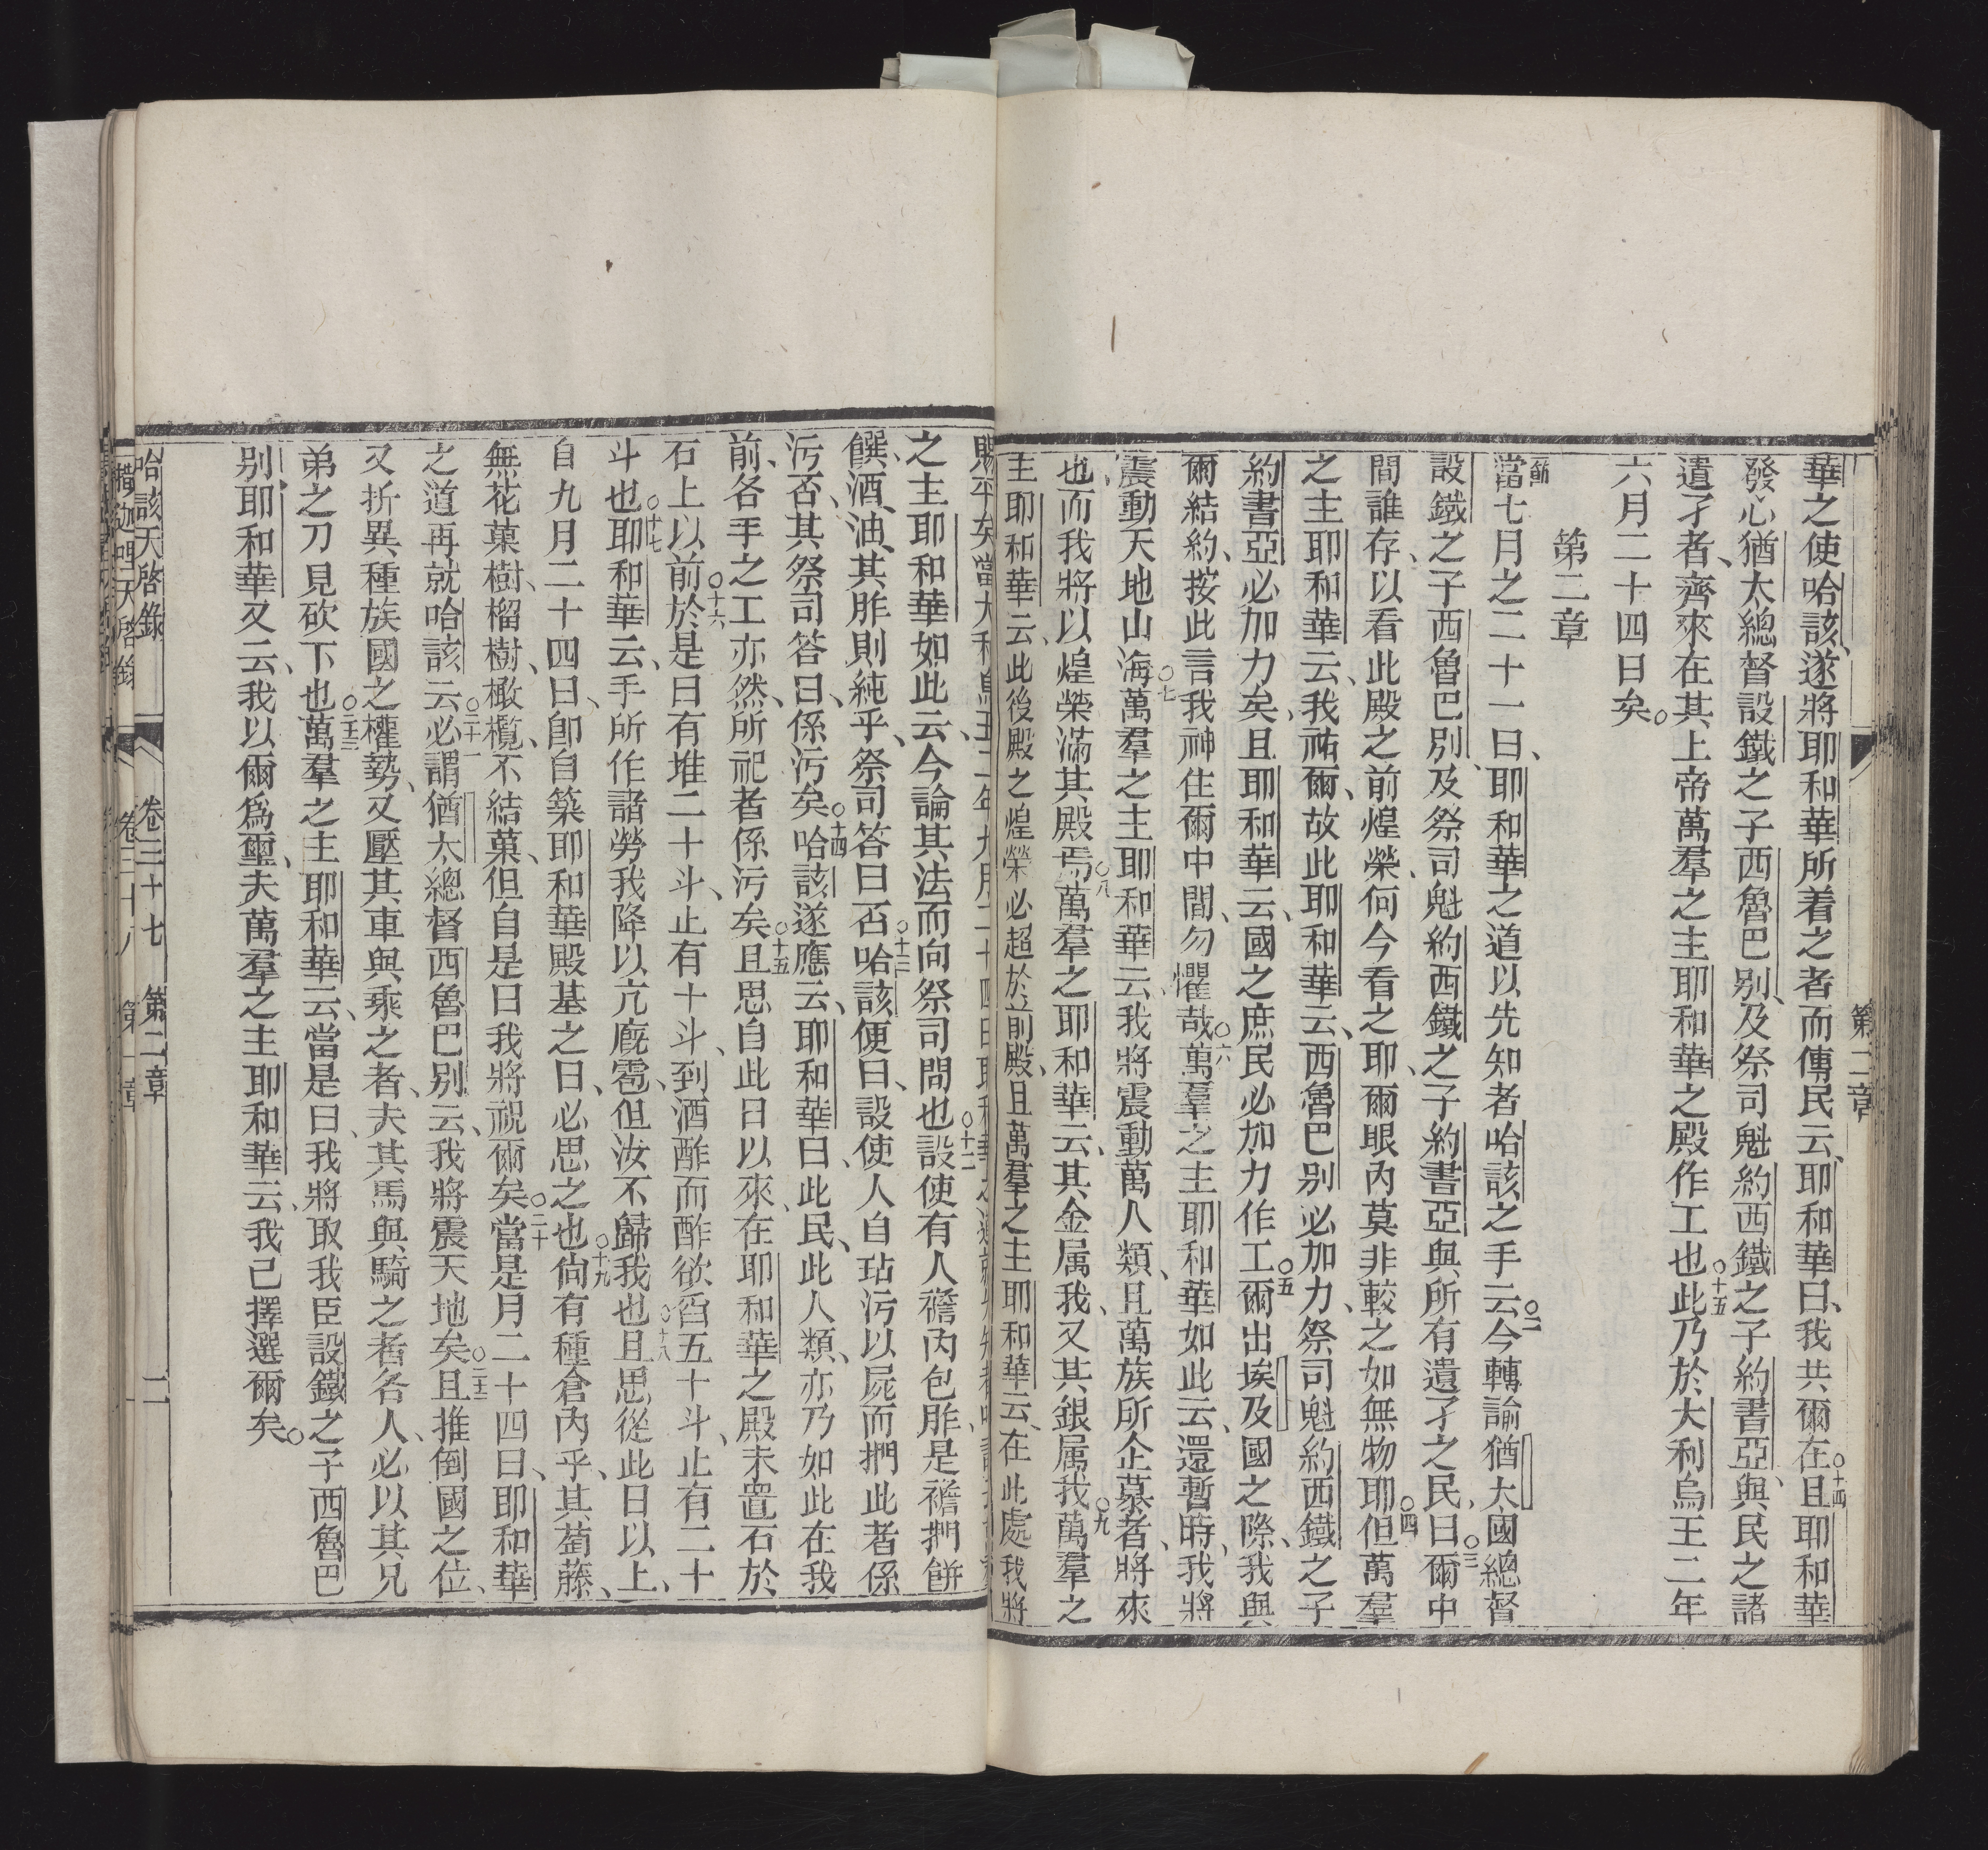 第二章
華之使哈該、遂將耶和華所着之者而傳民云、耶和華曰、我共爾在○十四且耶和華
發心猶太總督設鐵之子西魯巴別、及祭司魁約西鐵之子約書亞、與民之諸
遺孑者、齊來在其上帝萬羣之主耶和華之殿作工也○十五此乃於大利烏王二年
六月二十四日矣○
第二章
一節當七月之二十一日、耶和華之道以先知者哈該之手云○二今轉諭猶太國總督
設鐵之子西魯巴別、及祭司魁約西鐵之子約書亞與所有遺孑之民、曰○三爾中
間誰存、以看此殿之前煌榮、何今看之耶、爾眼內莫非較之如無物耶○四但萬羣
之主耶和華云、我祐爾、故此耶和華云、西魯巴別必加力、祭司魁約西鐵之子
約書亞必加力矣、且耶和華云、國之庶民必加力作工○五爾出埃及國之際、我與
爾結約、按此言我神住爾中間、勿懼哉○六萬羣之主耶和華如此云、還暫時、我將
震動天地山海○七萬羣之主耶和華云、我將震動萬人類、且萬族所企慕者、將來
也、而我將以煌榮滿其殿焉○八萬羣之耶和華云、其金属我、又其銀属我○九萬羣之
主耶和華云、此後殿之煌榮必超於前殿、且萬羣之主耶和華云、在此處我將
賜平矣
之主耶和華如此云、今論其法而向祭司問也○十二設使有人襜內包胙、是襜捫餅
饌、酒、油、其胙則純乎、祭司答曰否○十三哈該便曰、設使人自玷污以屍而捫此者係
污否、其祭司答曰、係污矣○十四哈該遂應云、耶和華曰、此民、此人類、亦乃如此在我
前、各手之工亦然、所祀者係污矣○十五且思自此日以來、在耶和華之殿未置石於
石上以前○十六於是日有堆二十斗、止有十斗、到酒酢而酢欲舀五十斗、止有二十
斗也○十七耶和華云、手所作諸勞我降以亢、廐、雹、但汝不歸我也○十八且思從此日以上、
自九月二十四日、卽自築耶和華殿基之日、必思之也○十九尙有種倉內乎、其萄藤、
無花菓樹、榴樹、橄欖、不結菓、但自是日我將祝爾矣○二十當是月二十四日、耶和華
之道再就哈該云○二十一必謂猶太總督西魯巴別云、我將震天地矣○二十二且推倒國之位、
又折異種族國之權勢、又壓其車與乘之者、夫其馬與騎之者各人、必以其兄
弟之刀見砍下也○二十三萬羣之主耶和華云、當是日、我將取我臣設鐵之子西魯巴
別、耶和華又云、我以爾爲璽、夫萬羣之主耶和華云、我己擇選爾矣○
哈該天啓錄　卷三十七　第二章　二